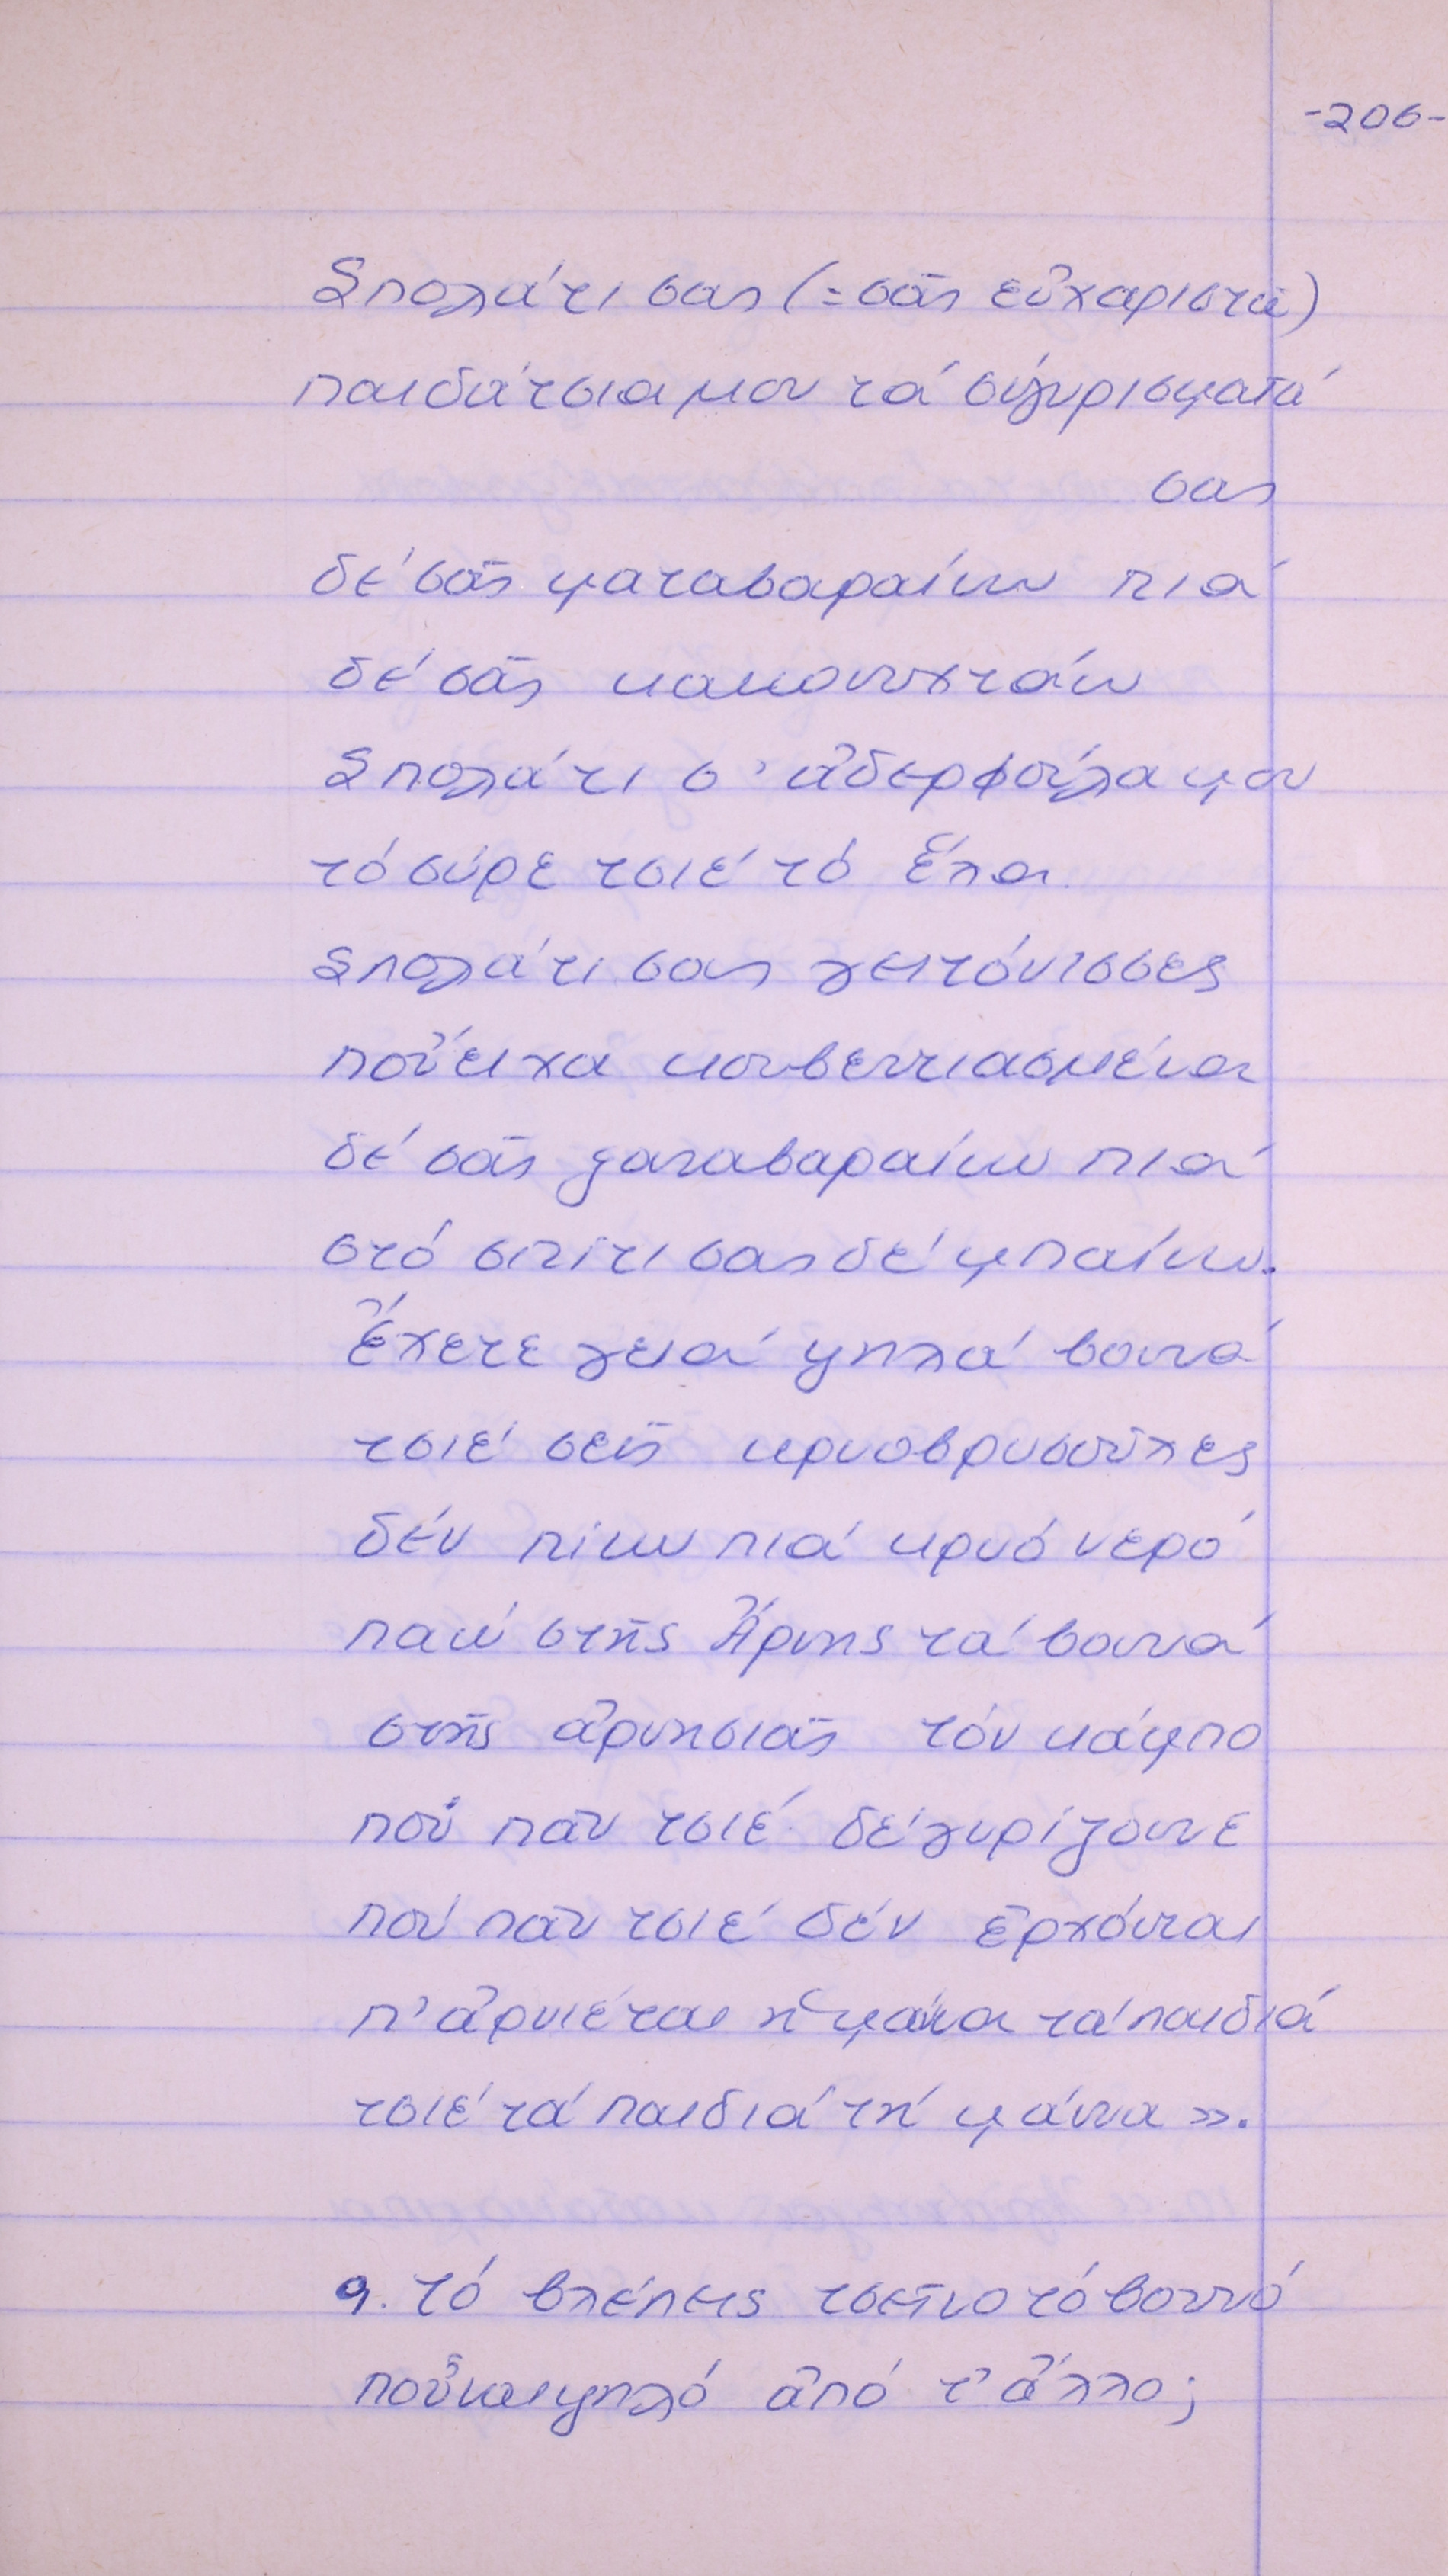 -206-
Σπολάτι σας (=σᾶς εὐχαριστῶ)
παιδάτσια μου τά σύγυρίσματά
σας
δέ σᾶς ματαβαραίνω πιά
δέ σᾶς κακονυχτάω
Σπολάτι σ' ἀδερφούλα μου
τό σύρε τσιέ τό ἔλα
Σπολάτι σας γειτόνισσες
ποὔειχα κουβεντιασμένα
δέ σᾶς ματαβαραίνω πιά
στό σπίτι σας δέ μπαίνω.
Ἔχετε γειά ψηλά βουνά
τσιέ σεῖς κρυοβρυσοῦλες
δέν πίνω πιά κρυό νερό
πάω στῆς Ἄρνης τά βουνά
στῆς ἀρνησιᾶς τόν κάμπο
πού πᾶν τσιέ δέ γυρίζουνε
πού πᾶν τσιέ δέν ἐρχόνται
π' ἀρνιέται ἡ μάνα τά παιδιά
τσιέ τά παιδιά τή μάνα».
9. τό βλέπεις τσεῖνο τό βουνό
ποὖναι ψηλό ἀπό τ' ἄλλο;